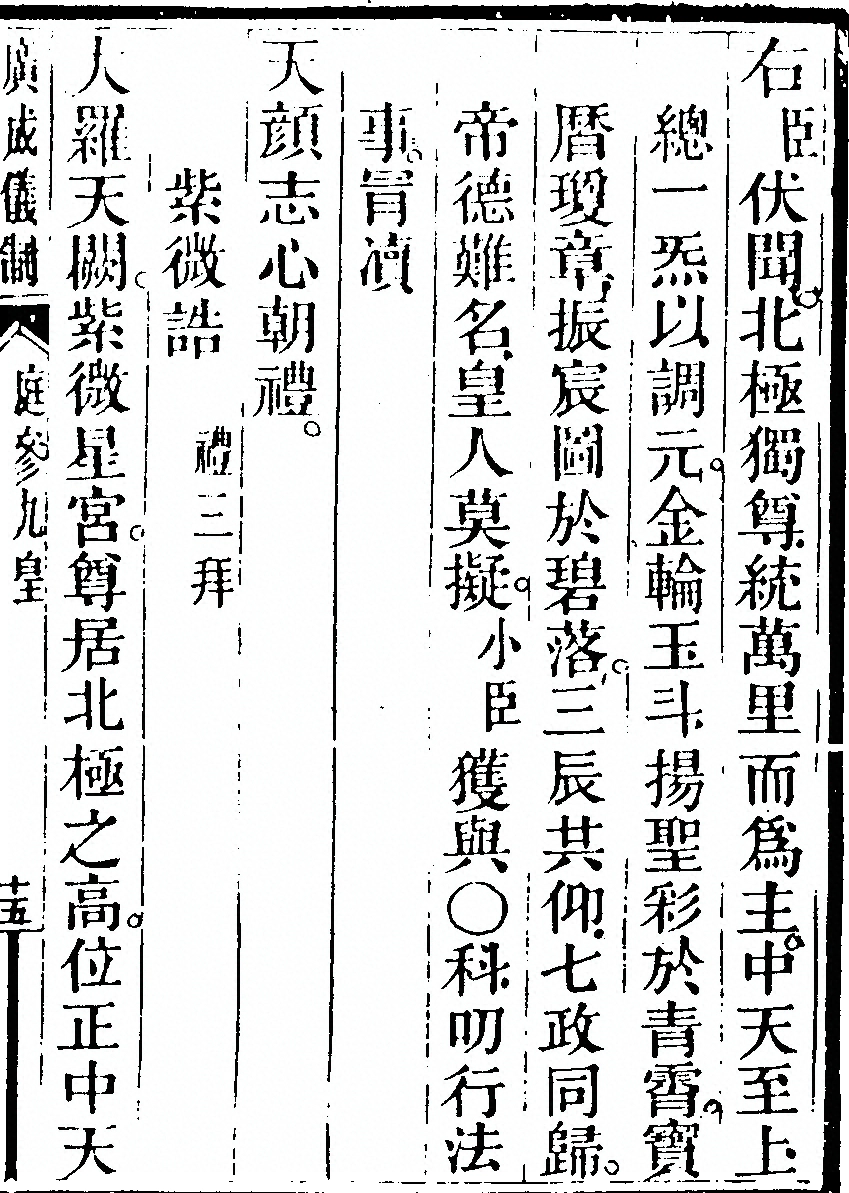 右臣伏聞。北極獨尊、統萬里而爲主。中天至上
總一炁以調元。金輪玉斗、揚聖彩於青霄。寶
曆瓊章、振宸圖於碧落。三辰共仰、七政同歸。
帝德難名、皇人莫擬。小臣獲與〇科、叨行法
事。冒瀆
天顔志心朝禮。
紫微誥 禮三拜
大羅天闕。紫微星宮。尊居北極之高。位正中天
廣成儀制 庭參九皇 十五